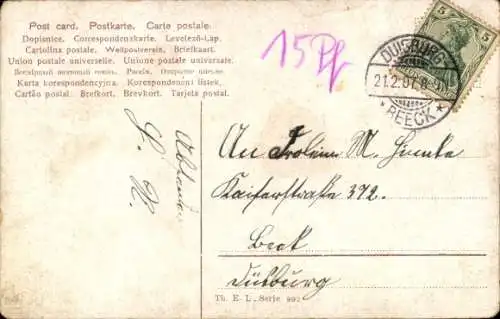 Post card. Postkarte. Carte postale.
Dopisnice. Correspondenzkarte. Levelező-Lap.
Cartolina postale. Weltpostverein. Briefkaart.
Union postale universelle. Unione postale universale.
Всемірный почтовый союзъ. Россія. Открытое письмо.
Karta korespondencyjna. Korespondenční listek.
Cartão postal. Brefkort. Brevkort. Tarjeta postal.
15 Pf
DUISBURG
21.2.07. 8-9
* BEECK *
5 5
L. H.
An Frolein M.
Kaiserstraße 372.
Beek
Duisburg
Th. E. L. Serie 992